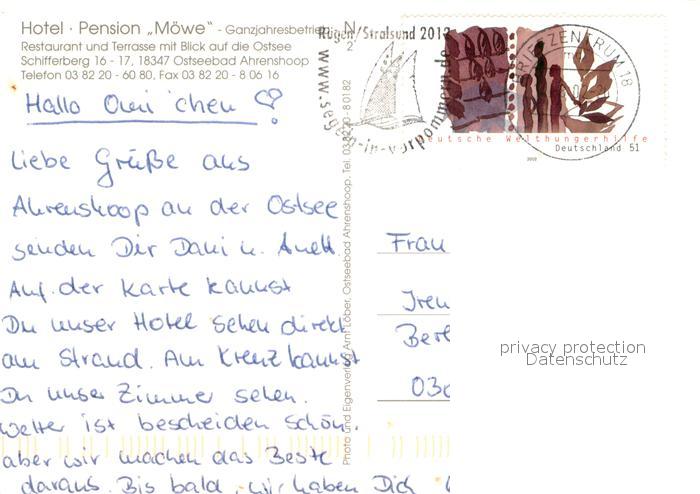 Hotel · Pension „Möwe“ - Ganzjahresbetrieb
Restaurant und Terrasse mit Blick auf die Ostsee
Schifferberg 16 - 17, 18347 Ostseebad Ahrenshoop
Telefon 03 82 20 - 60 80, Fax 03 82 20 - 8 06 16
Hallo Omi'chen
Liebe Grüße aus
Ahrenshoop an der Ostsee
senden Dir Dani u. Anett.
Auf der Karte kannst
Du unser Hotel sehen direkt
am Strand. Am Kreuz kannst
Du unser Zimmer sehen.
Wetter ist bescheiden schön,
aber wir machen das Beste
daraus. Bis bald, wir haben Dich
Photo und Eigenverlag Arnt Löber, Ostseebad Ahrenshoop, Tel. 038220-80182
Rügen/Stralsund
www.segeln-in-vorpommern.de
BRIEFZENTRUM 18
Deutsche Welthungerhilfe
Deutschland 51
Frau
Iren
Berl
030
privacy protection
Datenschutz